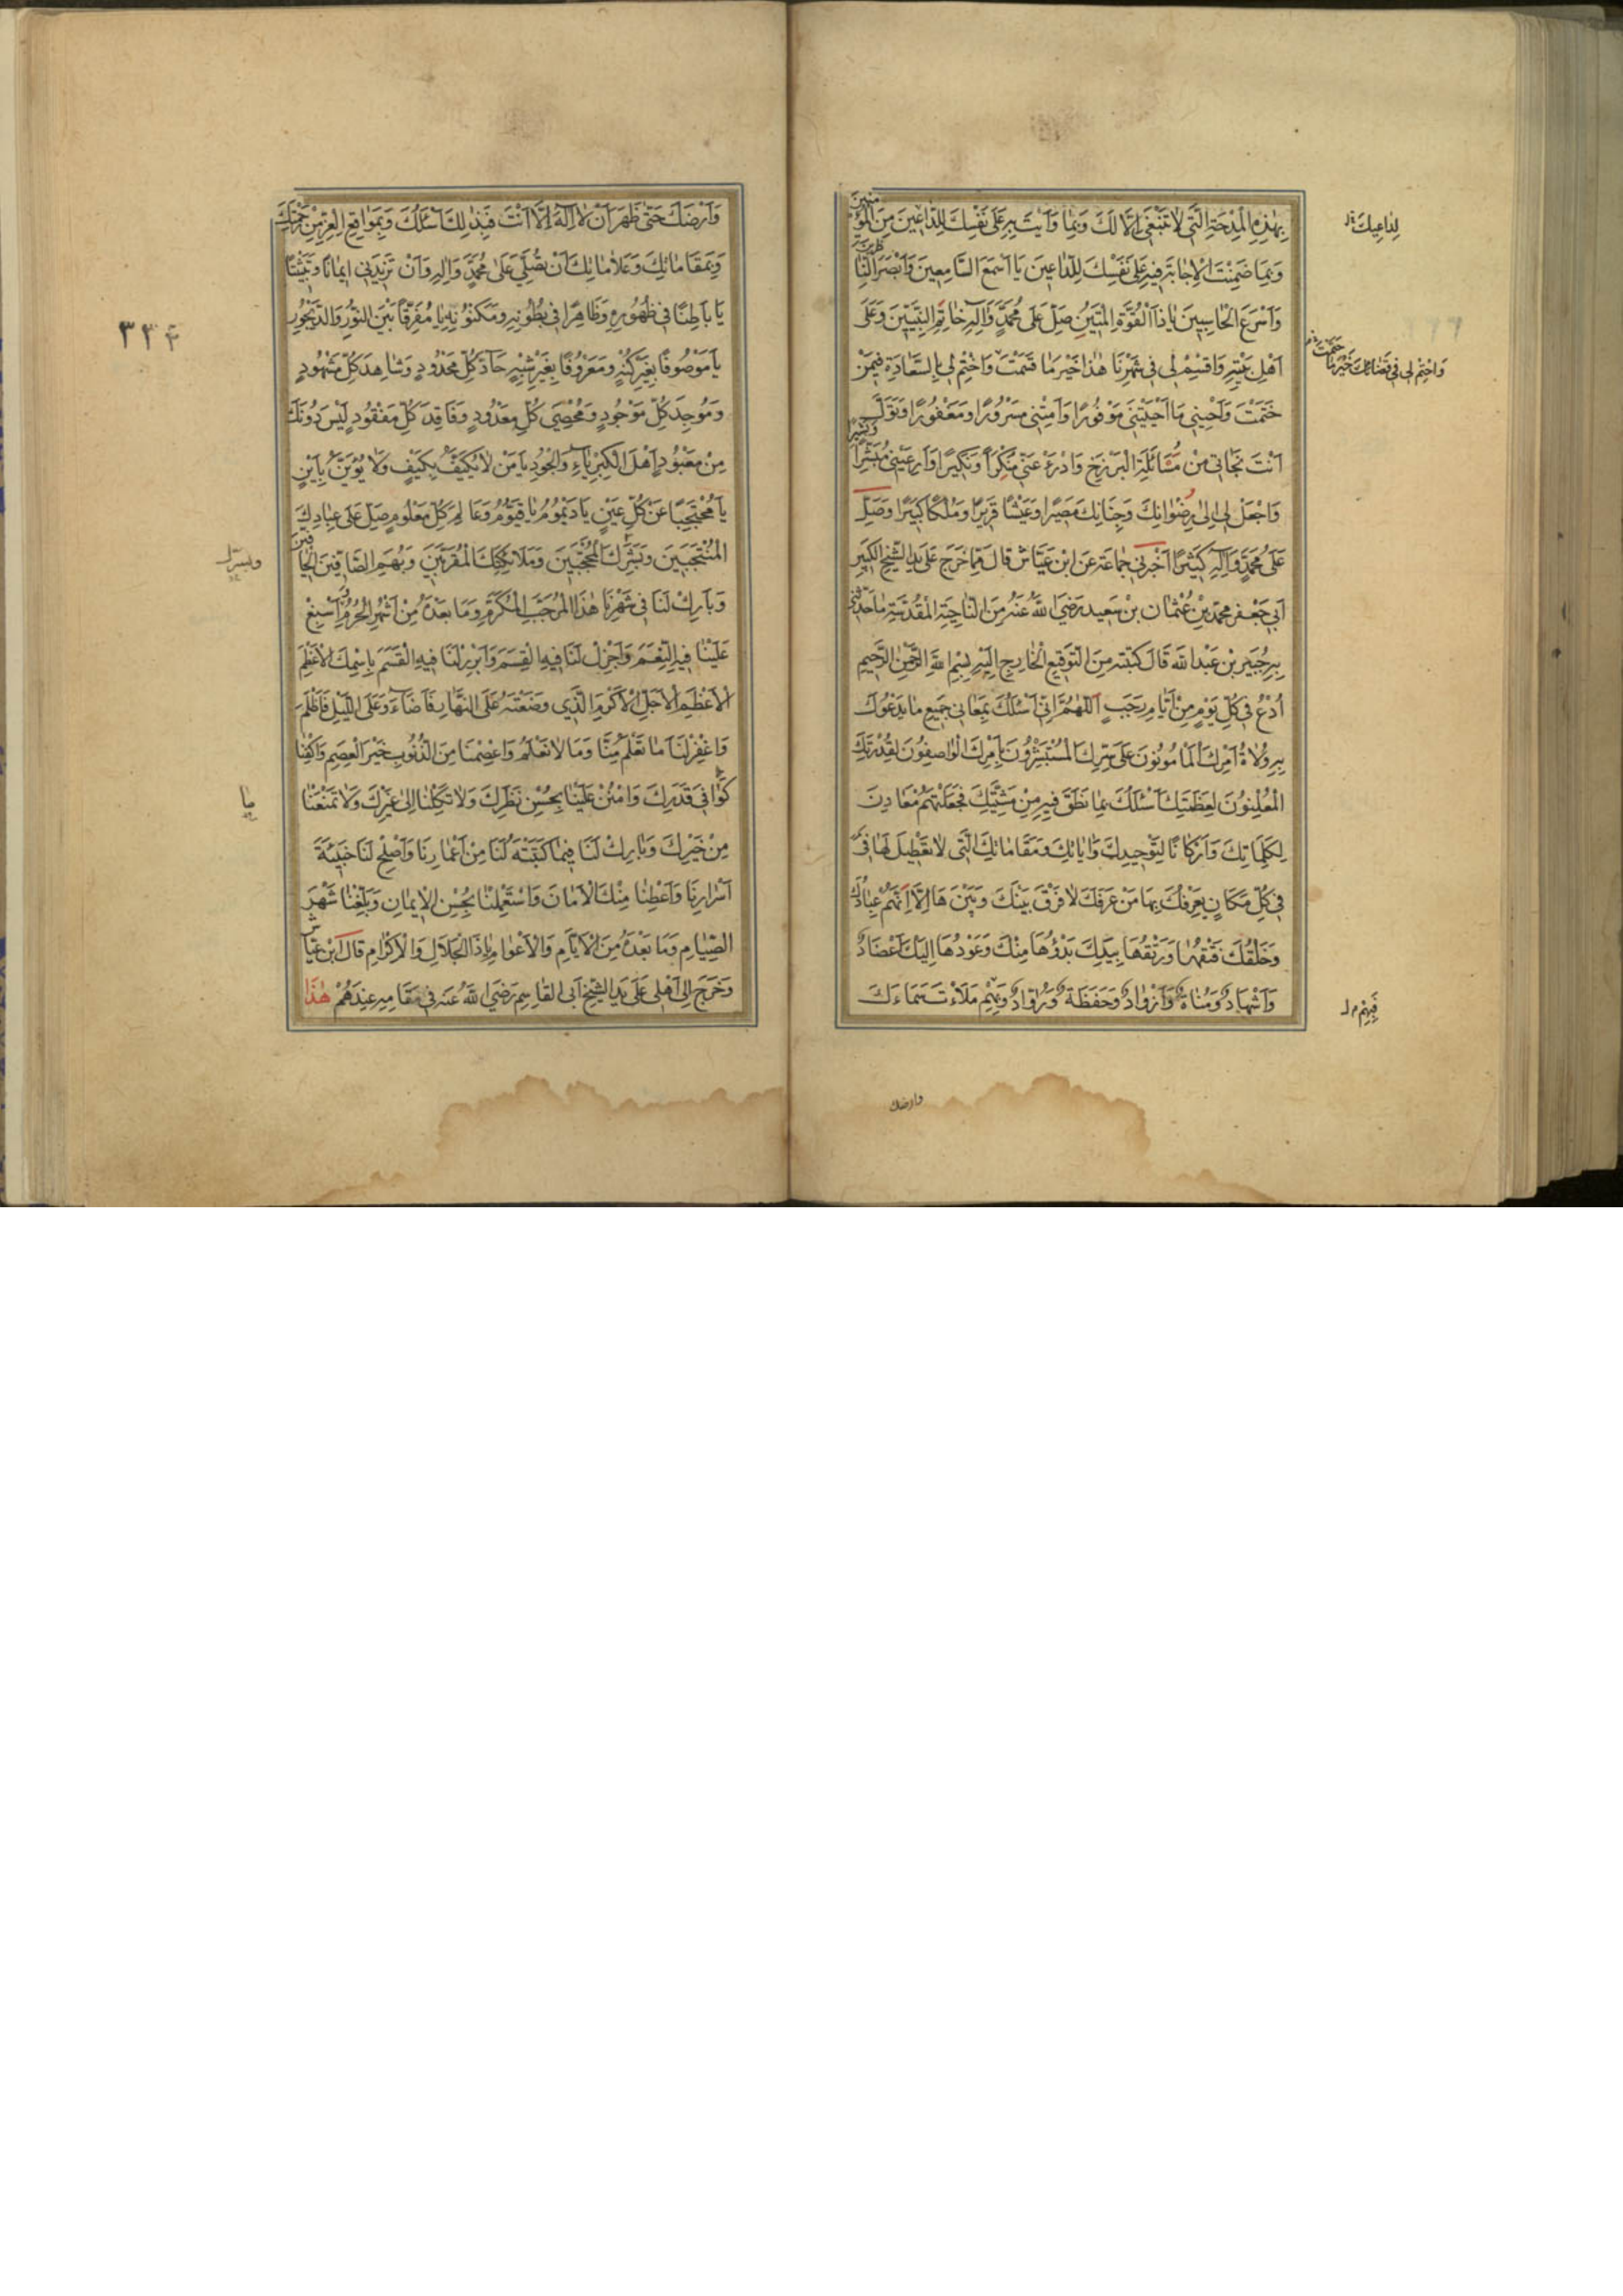 بِهٰذِهِ الْمِدْحَةِ الَّتِي لَا تَنْبَغِي إِلَّا لَكَ وَبِمَا وَاَيْتَ بِهِ عَلَى نَفْسِكَ لِلدَّاعِينَ مِنَ الْمُؤْمِنِينَ
لِدَاعِيكَ
وَبِمَا ضَمِنْتَ الْإِجَابَةَ فِيهِ عَلَى نَفْسِكَ لِلدَّاعِينَ يَا أَسْمَعَ السَّامِعِينَ وَأَبْصَرَ النَّاظِرِينَ
وَأَسْرَعَ الْحَاسِبِينَ يَا ذَا الْقُوَّةِ الْمَتِينُ صَلِّ عَلَى مُحَمَّدٍ وَآلِهِ خَاتَمِ النَّبِيِّينَ وَعَلَى
أَهْلِ بَيْتِهِ وَاقْسِمْ لِي فِي شَهْرِنَا هٰذَا خَيْرَ مَا قَسَمْتَ وَاخْتِمْ لِي بِالسَّعَادَةِ فِيمَنْ
وَاخْتِمْ لِي فِي قَضَائِكَ خَيْرَ مَا حَتَمْتَ
خَتَمْتَ وَأَحْيِنِي مَا أَحْيَيْتَنِي مَوْفُورًا وَأَمِتْنِي مَسْرُورًا وَمَغْفُورًا وَتَوَلَّ
أَنْتَ نَجَاتِي مِنْ مُسَائَلَةِ الْبَرْزَخِ وَادْرَءْ عَنِّي مُنْكَرًا وَنَكِيرًا وَأَرِ عَيْنِي مُبَشِّرًا وَبَشِيرًا
وَاجْعَلْ لِي إِلَى رِضْوَانِكَ وَجِنَانِكَ مَصِيرًا وَعَيْشًا قَرِيرًا وَمُلْكًا كَبِيرًا وَصَلِّ
عَلَى مُحَمَّدٍ وَآلِهِ كَثِيرًا أَخْبَرَنِي جَمَاعَةٌ عَنِ ابْنِ عَيَّاشٍ قَالَ مِمَّا خَرَجَ عَلَى يَدِ الشَّيْخِ الْكَبِيرِ
أَبِي جَعْفَرٍ مُحَمَّدِ بْنِ عُثْمَانَ بْنِ سَعِيدٍ رَضِيَ اللّٰهُ عَنْهُ مِنَ النَّاحِيَةِ الْمُقَدَّسَةِ مَا حَدَّثَنِي
بِهِ جُبَيْرُ بْنُ عَبْدِ اللّٰهِ قَالَ كَتَبْتُهُ مِنَ التَّوْقِيعِ الْخَارِجِ إِلَيْهِ بِسْمِ اللّٰهِ الرَّحْمٰنِ الرَّحِيمِ
اُدْعُ فِي كُلِّ يَوْمٍ مِنْ أَيَّامِ رَجَبٍ اَللّٰهُمَّ إِنِّي أَسْئَلُكَ بِمَعَانِي جَمِيعِ مَا يَدْعُوكَ
بِهِ وُلَاةُ أَمْرِكَ الْمَأْمُونُونَ عَلَى سِرِّكَ الْمُسْتَبْشِرُونَ بِأَمْرِكَ الْوَاصِفُونَ لِقُدْرَتِكَ
الْمُعْلِنُونَ لِعَظَمَتِكَ أَسْئَلُكَ بِمَا نَطَقَ فِيهِمْ مِنْ مَشِيَّتِكَ فَجَعَلْتَهُمْ مَعَادِنَ
لِكَلِمَاتِكَ وَأَرْكَانًا لِتَوْحِيدِكَ وَآيَاتِكَ وَمَقَامَاتِكَ الَّتِي لَا تَعْطِيلَ لَهَا فِي
فِي كُلِّ مَكَانٍ يَعْرِفُكَ بِهَا مَنْ عَرَفَكَ لَا فَرْقَ بَيْنَكَ وَبَيْنَهَا إِلَّا أَنَّهُمْ عِبَادُكَ
وَخَلْقُكَ فَتْقُهَا وَرَتْقُهَا بِيَدِكَ بَدْؤُهَا مِنْكَ وَعَوْدُهَا إِلَيْكَ أَعْضَادٌ
وَأَشْهَادٌ وَمُنَاةٌ وَأَزْوَادٌ وَحَفَظَةٌ وَرُوَّادٌ وَبِهِمْ مَلَأْتَ سَمَاءَكَ
فَبِهِمْ
وارضك
وَأَرْضَكَ حَتَّى ظَهَرَ أَنْ لَا إِلٰهَ إِلَّا أَنْتَ فَبِذٰلِكَ أَسْئَلُكَ وَبِمَوَاقِعِ الْعِزِّ مِنْ رَحْمَتِكَ
وَبِمَقَامَاتِكَ وَعَلَامَاتِكَ أَنْ تُصَلِّيَ عَلَى مُحَمَّدٍ وَآلِهِ وَأَنْ تَزِيدَنِي إِيمَانًا وَتَثْبِيتًا
يَا بَاطِنًا فِي ظُهُورِهِ وَظَاهِرًا فِي بُطُونِهِ وَمَكْنُونِهِ يَا مُفَرِّقًا بَيْنَ النُّورِ وَالدَّيْجُورِ
٣٣٤
يَا مَوْصُوفًا بِغَيْرِ كُنْهٍ وَمَعْرُوفًا بِغَيْرِ شِبْهٍ حَادَّ كُلِّ مَحْدُودٍ وَشَاهِدَ كُلِّ مَشْهُودٍ
وَمُوجِدَ كُلِّ مَوْجُودٍ وَمُحْصِيَ كُلِّ مَعْدُودٍ وَفَاقِدَ كُلِّ مَفْقُودٍ لَيْسَ دُونَكَ
مِنْ مَعْبُودٍ أَهْلَ الْكِبْرِيَاءِ وَالْجُودِ يَا مَنْ لَا يُكَيَّفُ بِكَيْفٍ وَلَا يُؤَيَّنُ بِأَيْنٍ
يَا مُحْتَجِبًا عَنْ كُلِّ عَيْنٍ يَا دَيْمُومُ يَا قَيُّومُ وَعَالِمَ كُلِّ مَعْلُومٍ صَلِّ عَلَى عِبَادِكَ
الْمُنْتَجَبِينَ وَبَشَرِكَ الْمُحْتَجِبِينَ وَمَلَائِكَتِكَ الْمُقَرَّبِينَ وَبُهَمِ الصَّافِّينَ الْحَافِّينَ
وَبَارِكْ لَنَا فِي شَهْرِنَا هٰذَا الْمُرَجَّبِ الْمُكَرَّمِ وَمَا بَعْدَهُ مِنْ أَشْهُرِ الْحُرُمِ وَأَسْبِغْ
عَلَيْنَا فِيهِ النِّعَمَ وَأَجْزِلْ لَنَا فِيهِ الْقِسَمَ وَأَبْرِرْ لَنَا فِيهِ الْقَسَمَ بِاسْمِكَ الْأَعْظَمِ
الْأَعْظَمِ الْأَجَلِّ الْأَكْرَمِ الَّذِي وَضَعْتَهُ عَلَى النَّهَارِ فَأَضَاءَ وَعَلَى اللَّيْلِ فَأَظْلَمَ
وَاغْفِرْ لَنَا مَا تَعْلَمُ مِنَّا وَمَا لَا نَعْلَمُ وَاعْصِمْنَا مِنَ الذُّنُوبِ خَيْرَ الْعِصَمِ وَاكْفِنَا
كَوَافِيَ قَدَرِكَ وَامْنُنْ عَلَيْنَا بِحُسْنِ نَظَرِكَ وَلَا تَكِلْنَا إِلَى غَيْرِكَ وَلَا تَمْنَعْنَا
مِنْ خَيْرِكَ وَبَارِكْ لَنَا فِيمَا كَتَبْتَهُ لَنَا مِنْ أَعْمَارِنَا وَأَصْلِحْ لَنَا خَبِيئَةَ
أَسْرَارِنَا وَأَعْطِنَا مِنْكَ الْأَمَانَ وَاسْتَعْمِلْنَا بِحُسْنِ الْإِيمَانِ وَبَلِّغْنَا شَهْرَ
الصِّيَامِ وَمَا بَعْدَهُ مِنَ الْأَيَّامِ وَالْأَعْوَامِ يَا ذَا الْجَلَالِ وَالْإِكْرَامِ قَالَ ابْنُ عَيَّاشٍ
وَخَرَجَ إِلَى أَهْلِي عَلَى يَدِ الشَّيْخِ أَبِي الْقَاسِمِ رَضِيَ اللّٰهُ عَنْهُ فِي مَقَامِهِ عِنْدَهُمْ هٰذَا